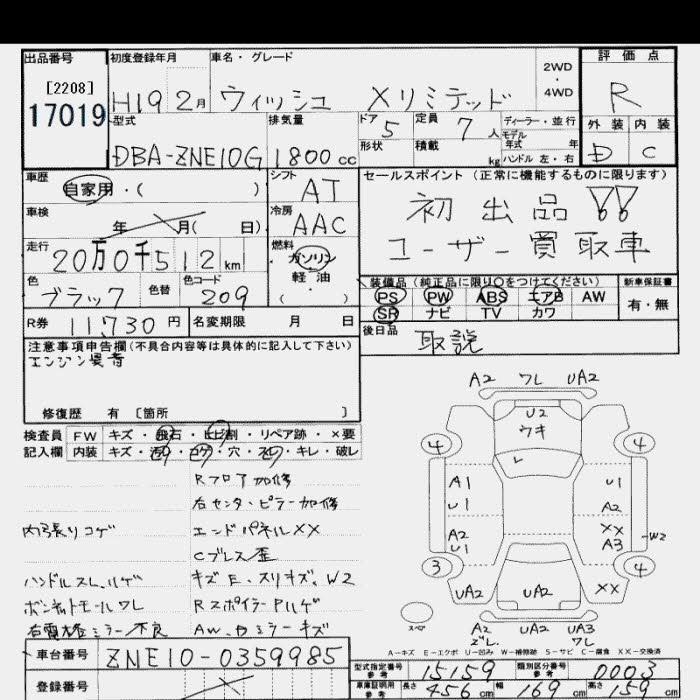 出品番号 初度登録年月 車名・グレード 2WD・4WD 評価点
[2208]
17019 H19 2月 ウィッシュ Xリミテッド R
型式 排気量 ドア 5 定員 7人 ディーラー・並行 外装 内装
DBA-ZNE10G 1800cc 形状 積載 kg モデル年式 年 ハンドル 左・右 D C
車歴 自家用・( ) シフト AT セールスポイント(正常に機能するものに限ります)
車検 年 月( 日) 冷房 AAC 初出品!!
走行 20万0千512km 燃料 ガソリン 軽油 ( ・ ) ユーザー買取車
色 ブラック 色替 色コード 209 装備品(純正品に限り○をつけてください) 新車保証書
PS PW ABS エアB AW 有・無
SR ナビ TV カワ
R券 11,730円 名変期限 月 日 後日品 取説
注意事項申告欄(不具合内容等は具体的に記入して下さい)
エンジン異音
修復歴 有 [箇所 ]
検査員 FW キズ・飛石・ヒビ割・リペア跡・×要
記入欄 内装 キズ・汚れ・コゲ・穴・スレ・キレ・破レ
Rフロア加修
右センターピラー加修
内張りコゲ エンドパネルXX
Cプレス歪
ハンドルスレ、ハゲ キズE、スリキズ、W2
ボンネットモールワレ RスポイラーPハゲ
右電格ミラー不良 AW、カミラーキズ
A2 ワレ UA2
U2
ウキ
4 レ 4
A1 U1
A2 A2
U1 XX W2
A3
3 4
UA2 UA2 XX
スペア
A2 UA2 UA3
ズレ ワレ
A-キズ E-エクボ U-凹み W-補修跡 S-サビ C-腐食 XX-交換済
車台番号 ZNE10-0359985
登録番号
型式指定番号 15159 類別区分番号 0003
車庫証明用参考 長さ 456cm 幅 169cm 高さ 159cm